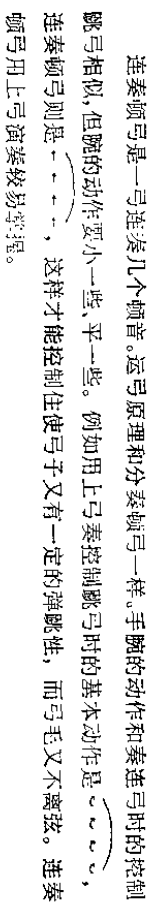 连奏顿弓是一弓连凑几个顿音。运弓原理和分奏顿弓一样。手腕的动作和奏连弓时的控制
跳弓相似，但腕的动作要小一些、平一些。例如用上弓奏控制跳弓时的基本动作是，
连奏顿弓则是，这样才能控制住使弓子又有一定的弹跳性，而弓毛又不离弦。连奏
顿弓用上弓演奏较易掌握。